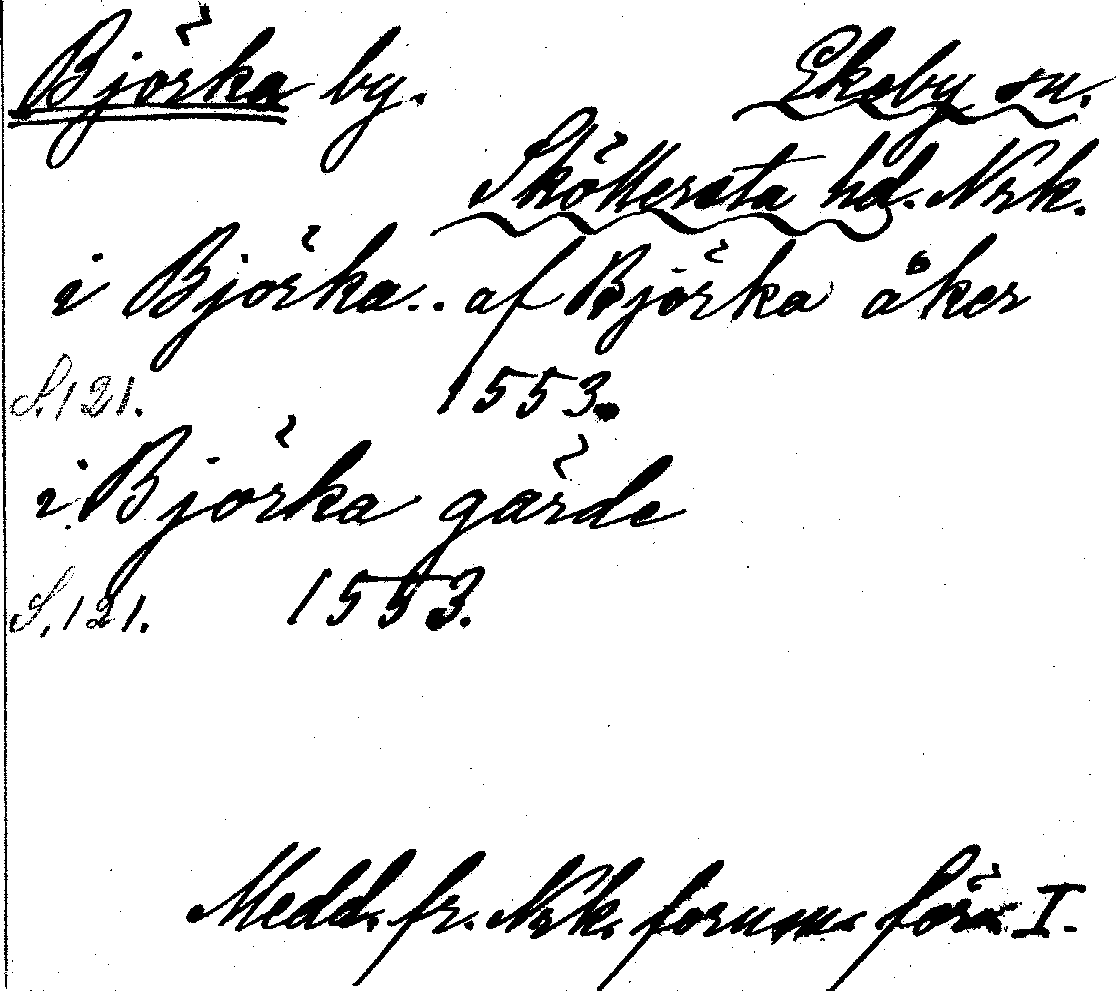 Björka by. Ekeby sn.
Sköllersta hd. Nrk.
i Björka.. af Björka åker
S. 121. 1553.
i Björka gärde
S. 121. 1553.
Medd. fr. Nrk. fornm. för. I.